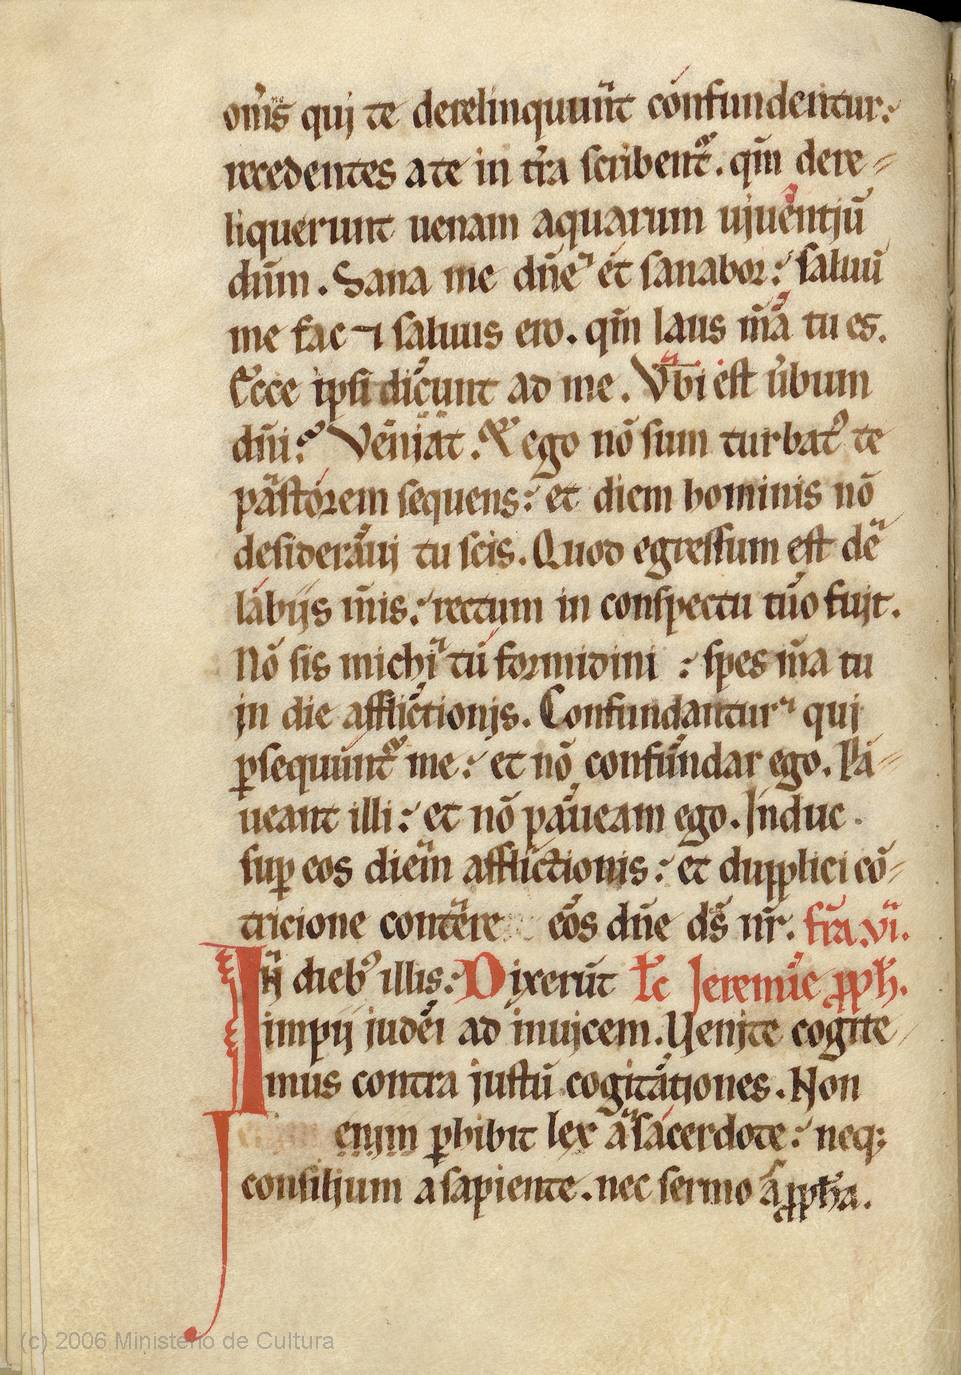 om̅s qui te derelinquu̅nt confundentur:
recedentes a te in t̅ra scribent᷑. qm̅ dere-
liquerunt uenam aquarum uiuentiu̅
dn̅m. Sana me dn̅e et sanabor: saluu̅
me fac ⁊ saluus ero. qm̅ laus m̅a tu es.
Ecce ipsi dicunt ad me. Vbi est u̅bum
dn̅i? Veniat. Et ego no̅ sum turbatꝰ te
pastorem sequens: et diem hominis no̅
desideraui tu scis. Quod egressum est de
labijs m̅is: rectum in conspectu tuo fuit.
No̅ sis michi tu formidini : spes m̅a tu
in die afflictionis. Confundantur qui
ꝑsequu̅nt᷑ me: et no̅ confundar ego. Pa-
ueant illi: et no̅ paueam ego. Induc
suꝑ eos diem afflictionis: et dupplici co̅-
tricione contere eos dn̅e ds̅ nr̅. fr̅a. vi.
In diebꝰ illis: Dixeru̅t Lc̅ Jeremie ꝓph̅.
impij iudei ad inuicem. Uenite cogite
mus contra iustu̅ cogitationes. Non
enim ꝑhibit lex a sacerdote: neqꝫ
consilium a sapiente. nec sermo a ꝓph̅a.
(c) 2006 Ministerio de Cultura